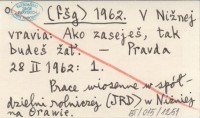 (fšg) 1962. V Nižnej
vravia: Ako zaseješ, tak
budeš žať. — Pravda
28 II 1962: 1.
Prace wiosenne w spół-
dzielni rolniczej (JRD) w Niżniej
na Orawie.